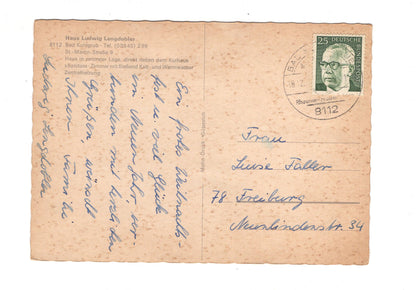 Haus Ludwig Langdobler
8112 Bad Kohlgrub · Tel. (08845) 299
St.-Martin-Straße 9
Haus in sonniger Lage, direkt neben dem Kurhaus
Zimmer mit fließend Kalt- und Warmwasser
Zentralheizung
Ein frohes Weihnachts-
fest u. viel Glück
im Neuen Jahr ver-
bunden mit herzlichen
Grüßen, wünscht
Ihnen Familie
Ludwig Langdobler
25
DEUTSCHE
BUNDESPOST
BAD
8112
Frau
Luise Faller
78 Freiburg
Neunlindenstr. 34